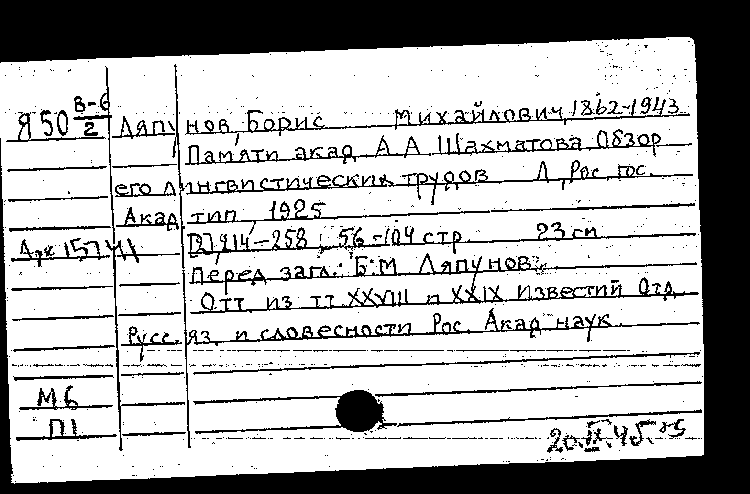 Я 50 В-6/2
Ляпунов, Борис Михайлович, 1862-1943
Памяти акад. А А Шахматова Обзор
его лингвистических трудов Л, Рос. гос.
Акад. тип, 1925
Арх 15741 [2], 214-258; 56-104 стр. 23 см
Перед загл.: Б.М Ляпунов
Отт. из тт. XXVIII и XXIX Известий Отд.
Русс. яз. и словесности Рос. Акад. наук.
М6
П1
20.IX.45.